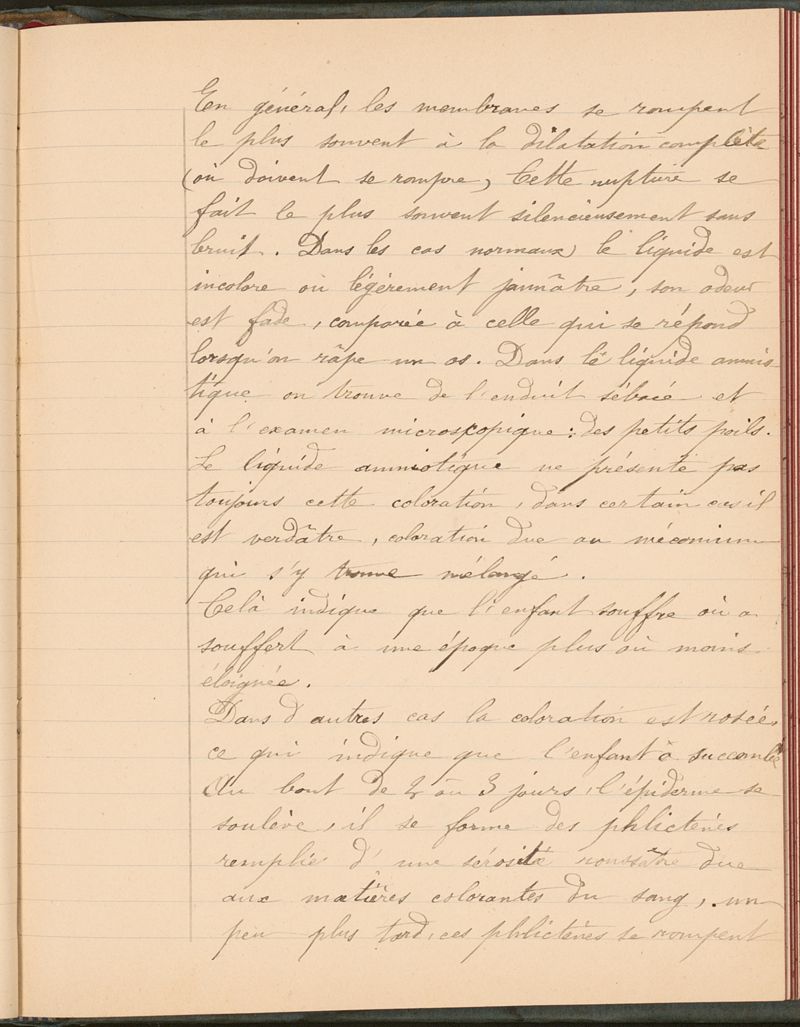 En général, les membranes se rompent
le plus souvent à la dilatation complète
(où doivent se rompre, Cette rupture se
fait le plus souvent silencieusement sans
bruit. Dans les cas normaux, le liquide est
incolore où légèrement jaunâtre, son odeur
est fade, comparée à celle qui se répond
lorsqu'on râpe un os. Dans le liquide amnio-
tique on trouve de l'enduit sébacé et
à l'examen microscopique: des petits poils.
Le liquide amniotique ne présente pas
toujours cette coloration, dans certain cas il
est verdâtre, coloration due au méconium
qui s'y trouve mélangé.
Celà indique que l'enfant souffre où a
souffert à une époque plus où moins
éloignée.
Dans d'autres cas la coloration est rosée,
ce qui indique que l'enfant à succombé
Au bout de 2 où 3 jours, l'épiderme se
soulève, il se forme des phlictènes
remplie d'une sérosité roussâtre due
aux matières colorantes du sang, un
peu plus tard, ces phlictènes se rompent